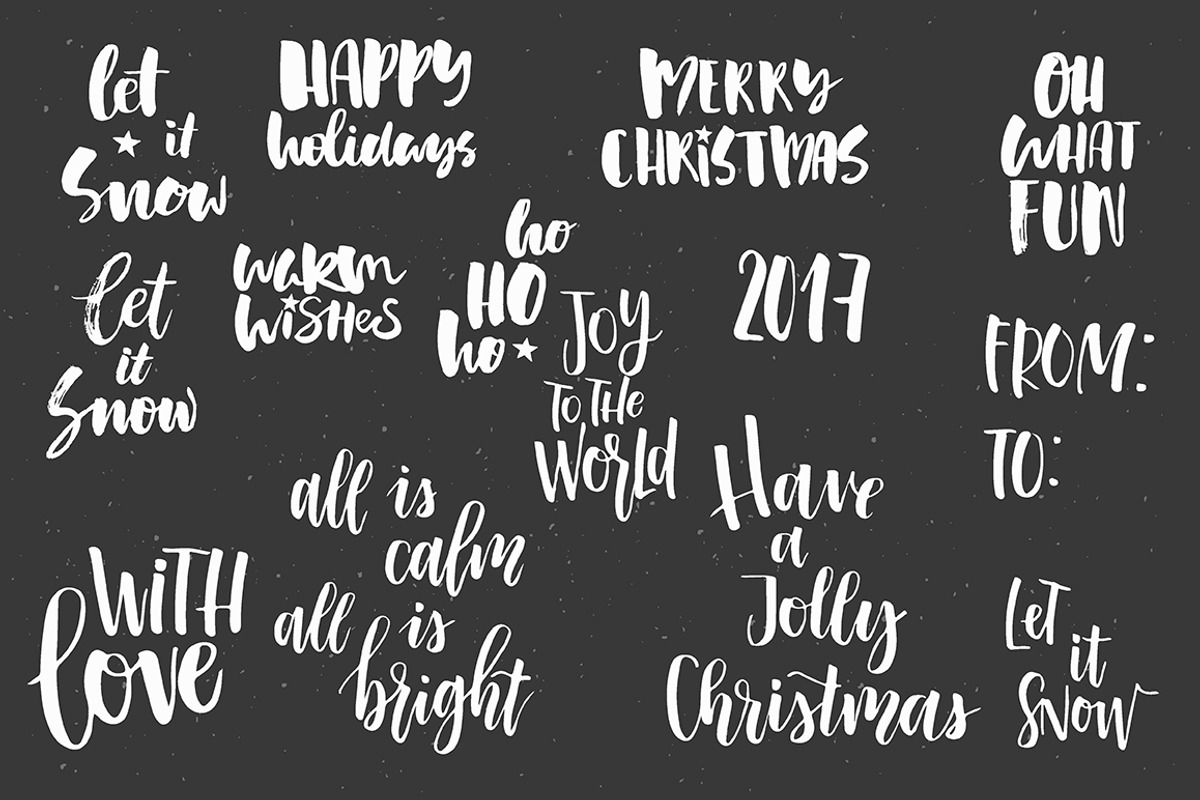 let
it
Snow
HAPPY
holidays
MERRY
CHRiSTMAS
OH
WHAT
FUN
let
it
Snow
waRm
WiSHeS
ho
HO
ho
JOY
TO THe
WoRLd
2017
FROM:
TO:
all is
calm
all is
bright
WiTH
love
Have
a
Jolly
Christmas
LeT
iT
SNOW